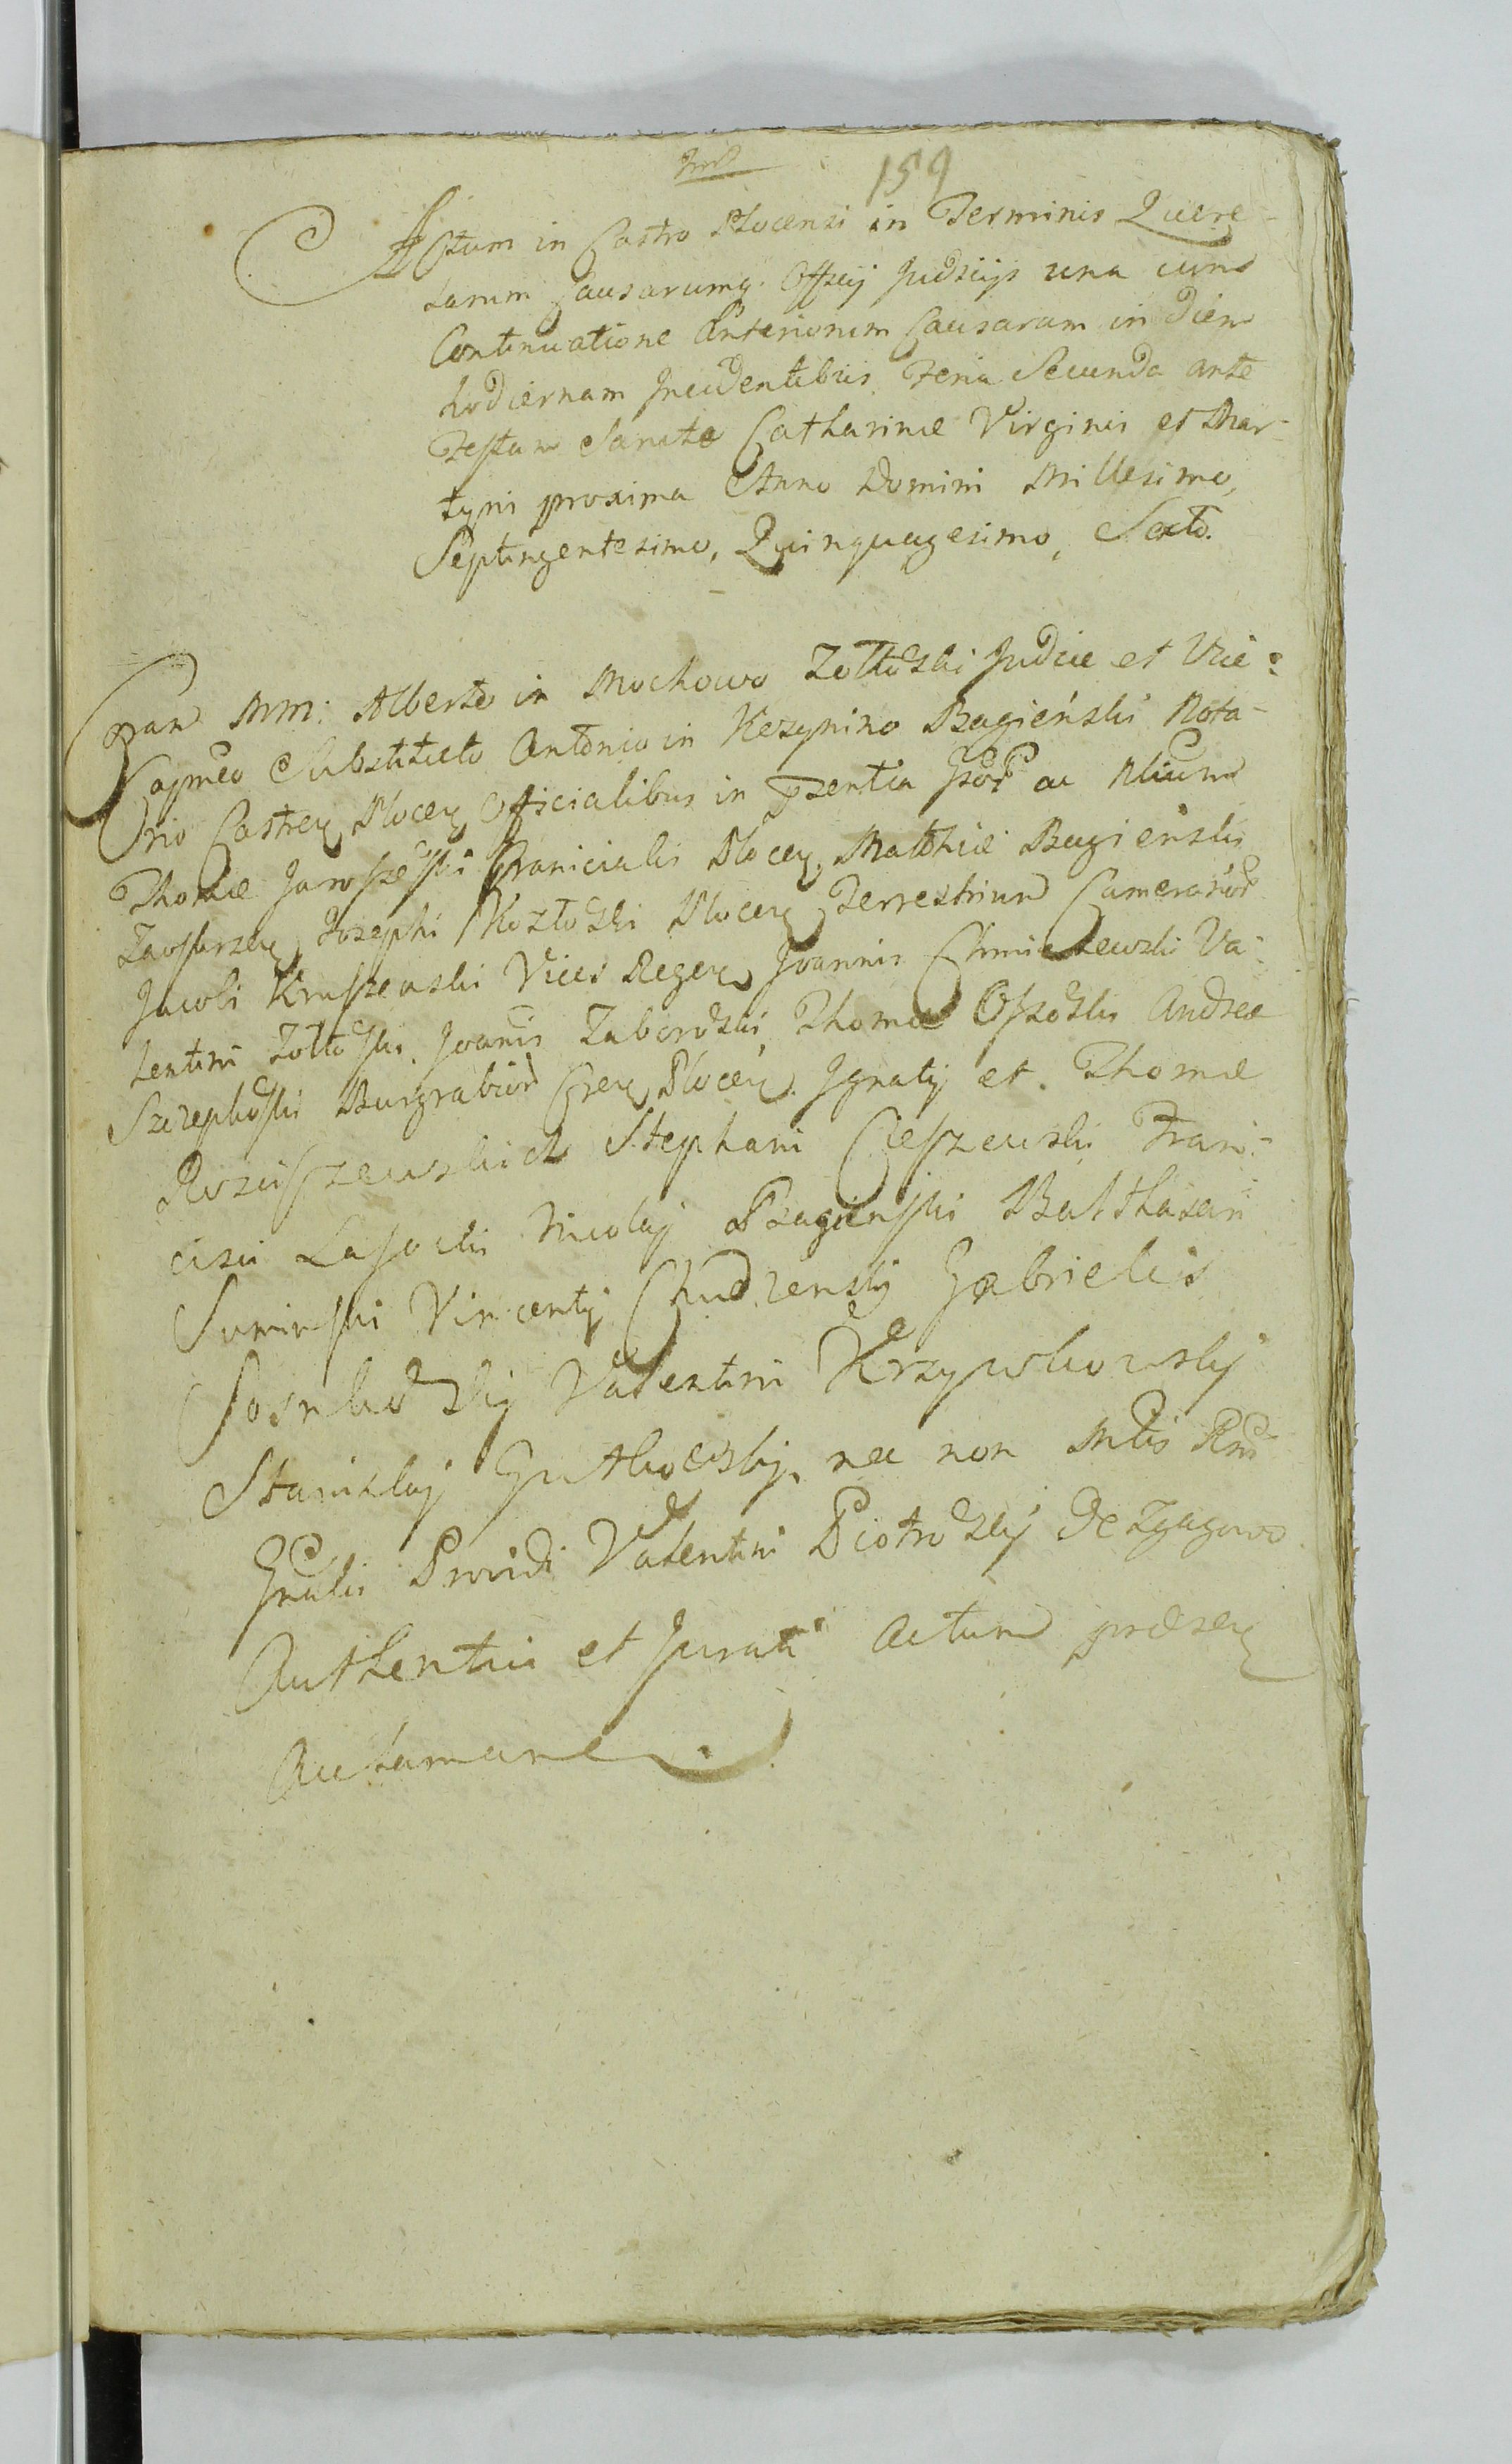 159
Actum in Castro Plocensi in Terminis Quere-
larum Causarumq. Officij Judicijs una cum
Continuatione Anteriorum Causarum in diem
hodiernam Incidentibus Feria Secunda ante
Festum Sanctæ Catharinæ Virginis et Mar-
tyris proxima Anno Domini Millesimo,
Septingentesimo, Quinquagesimo, Sexto.
Coram MM: Alberto in Mochowo Zołtoski Judice et Vice
Capneo Substituto Antonio in Kczynino Bagieński Nota-
rio Castren Plocen Officialibus in pzentia ac Nlium
Thomæ Jaroszeski Granicialis Plocen, Matthiæ Bagieński
Zawskrzen Josephi Kozłoski Plocen Terrestrium Camerarior
Jacobi Kruszewski Vices Regen Joannis Chmielewski Va-
lentini Zołtoski, Joannis Zaboroski, Thomæ Ossoski Andreæ
Szczepkoski Burgrabior Cren Plocen. Ignatij et Thomæ
Rosciszewskich Stephani Cieszewski Fran-
cisci Lasocki Nicolaj Bagienski Balthasari
Suminski Vincentij Chudzenskij Gabrielis
Sosnkoskij Valentini Krzywkowskij
Stanislaj Gutkowskij, nec non Mtis Rni
Gnalis Providi Valentini Piotroskij de Zgagowo
Authentici et Jurati actum præsen